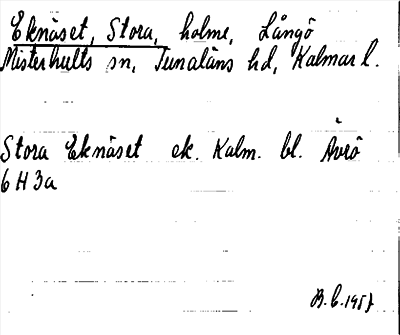 Eknäset, Stora, holme, Långö
Misterhults sn, Tunaläns hd, Kalmar l.
Stora Eknäset ek. Kalm. bl. Ävrö
6 H 3a
1957